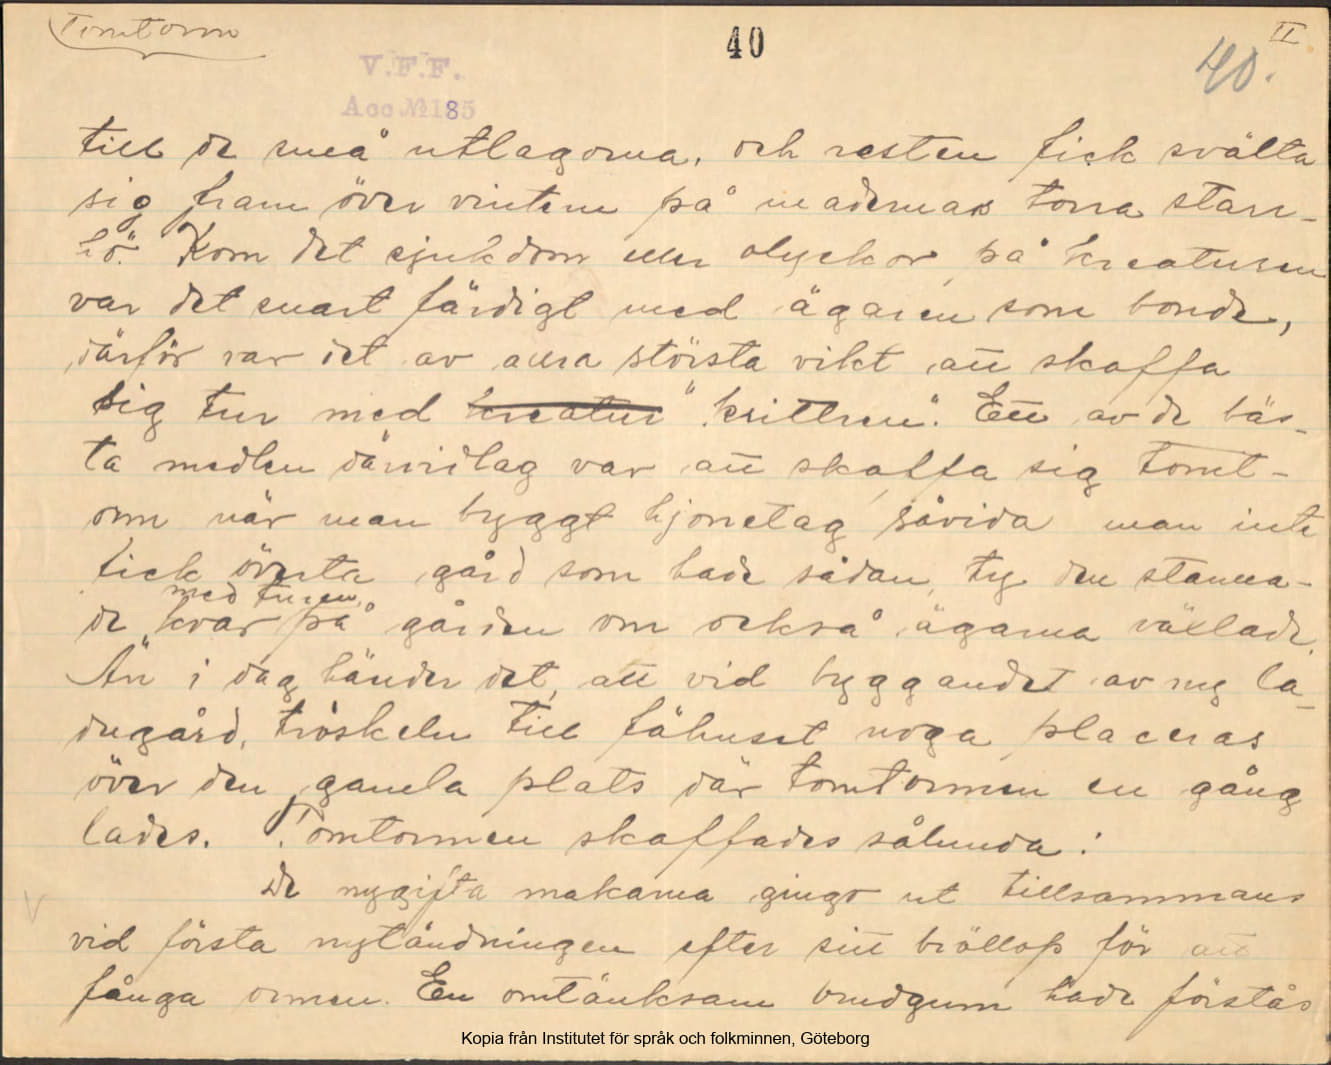 Tomtorm
40
II
40.
V.F.F.
Acc № 185
till de små utlagorna, och resten fick svälta
sig fram över vintern på madernas torra starr-
hö. Kom det sjukdom eller olyckor på kreaturen
var det snart färdigt med ägaren som bonde,
därför var det av allra största vikt att skaffa
sig tur med kreatur "krittren". Ett av de bäs-
ta medlen därvidlag var att skaffa sig tomt-
orm när man byggt hjonelag såvida man inte
fick överta gård som hade sådan, ty den stanna-
med turen
de kvar på gården om också ägarna växlade.
Än i dag händer det, att vid byggandet av ny la-
dugård, tröskeln till fähuset noga placeras
över den gamla plats där tomtormen en gång
lades. Tomtormen skaffades sålunda:
De nygifta makarna gingo ut tillsammans
vid första nytändningen efter sitt bröllop för att
fånga ormen. En omtänksam brudgum hade förstås
Kopia från Institutet för språk och folkminnen, Göteborg